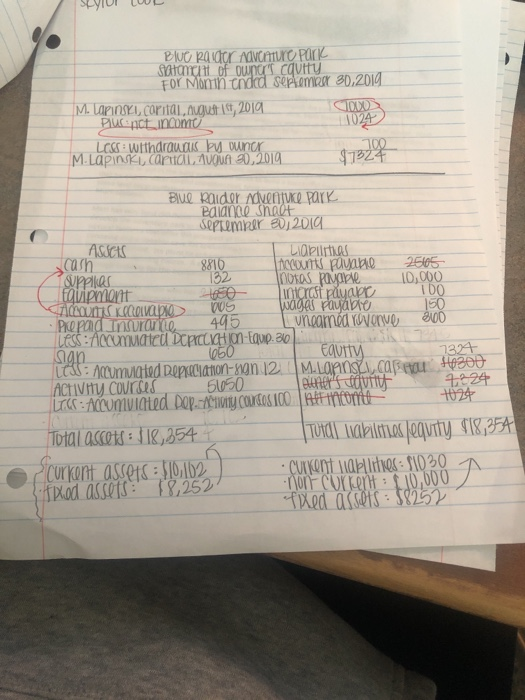 Blue Raider Adventure Park
Statement of owner's equity
For Month ended September 30, 2019
M. Lapinski, capital, August 1st, 2019 7000
Plus: net income 1024
Less: withdrawals by owner 700
M. Lapinski, capital, August 30, 2019 $7324
Blue Raider Adventure Park
Balance Sheet
September 30, 2019
Assets
Cash 8810
Supplies 132
Equipment 650
Accounts Receivable 665
Prepaid Insurance 495
Less: Accumulated Depreciation-Equip. 36
Sign 650
Less: Accumulated Depreciation-sign 12
Activity Courses 5650
Less: Accumulated Dep.-Activity courses 100
Total assets: $18,354
Liabilities
Accounts payable 2565
Notes payable 10,000
Interest payable 100
Wages payable 130
Unearned revenue 800
Equity 7324
M. Lapinski, capital 16300
owner's equity
Net income 1024
Total liabilities/equity $18,354
Current assets: $10,102
Fixed assets: $8,252
• Current liabilities: $1030
• non-current: $10,000
• fixed assets: $8252